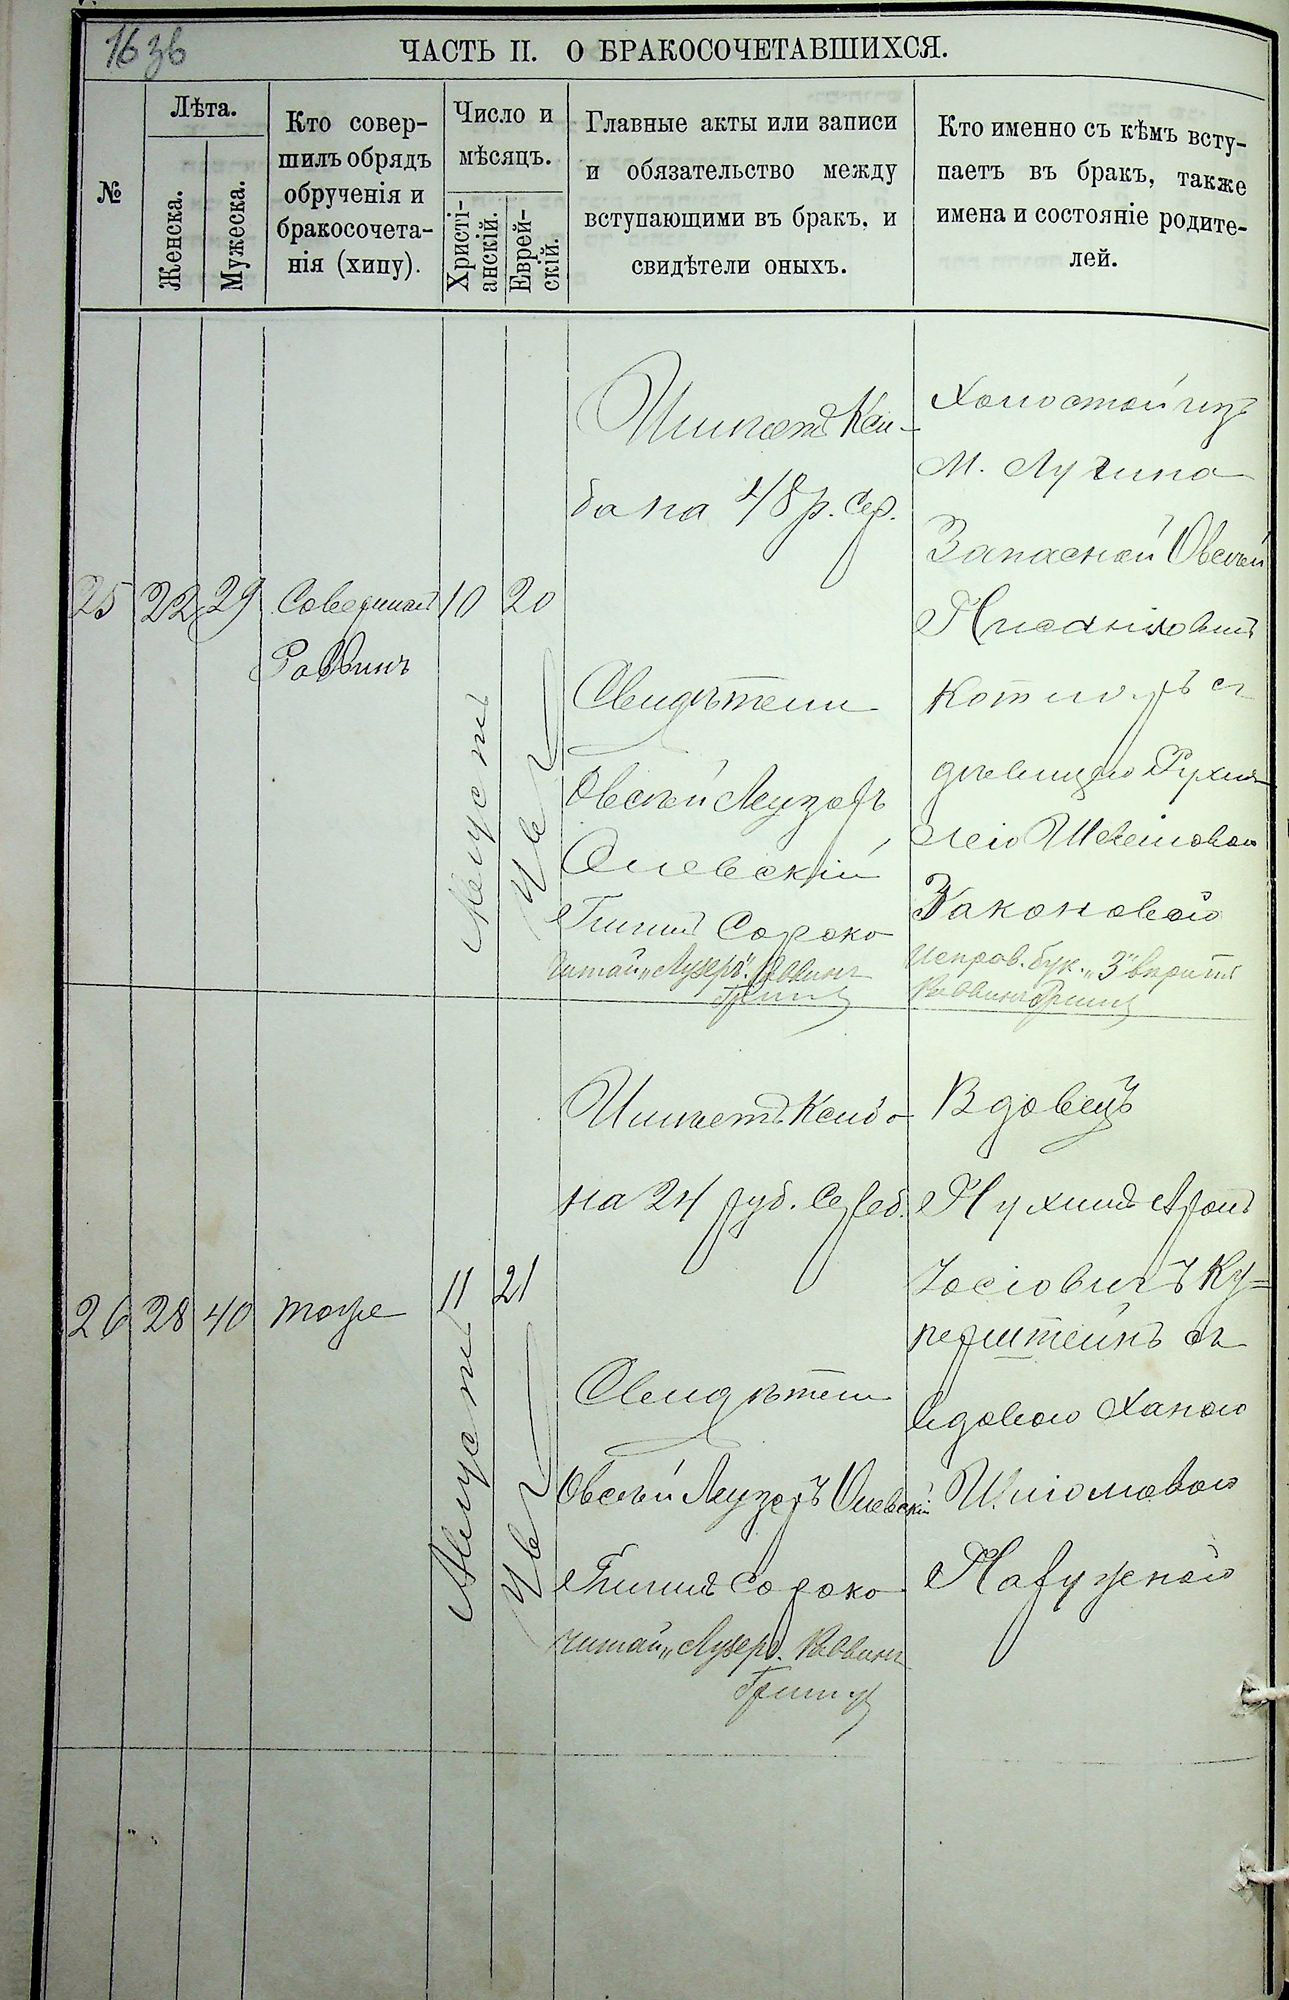 16 зв
ЧАСТЬ II. О БРАКОСОЧЕТАВШИХСЯ.
№
Лѣта.
Женска.
Мужеска.
Кто совер-
шилъ обрядъ
обрученія и
бракосочета-
нія (хипу).
Число и
мѣсяцъ.
Христі-
анскій.
Еврей-
скій.
Главные акты или записи
и обязательство между
вступающими въ бракъ, и
свидѣтели оныхъ.
Кто именно съ кѣмъ всту-
паетъ въ бракъ, также
имена и состояніе родите-
лей.
25
22
29
Совершалъ
Раввинъ
10
Августъ
20
Кси-
ба на 48 р. сер.
Свидѣтели
Овсѣй Лейзоръ
Олевскій
Сороко
Читай „Лузеръ". Раввинъ
Холостой изъ
М. Лугина
Запасной Овсѣй
съ
дѣвицею Рухлею
Законовою
Исправ. бук. „З" вѣрить
Раввинъ
26
28
40
тоже
11
Августъ
21
Ксиба
на 24 руб. сереб.
Свидѣтели
Овсѣй Лейзоръ Олевскій
Сороко
Читай „Лузеръ". Раввинъ
Вдовецъ
Нухимъ Аронъ
Іосіовичъ Ку-
перштейнъ съ
вдовою Ханою
Шліомовою